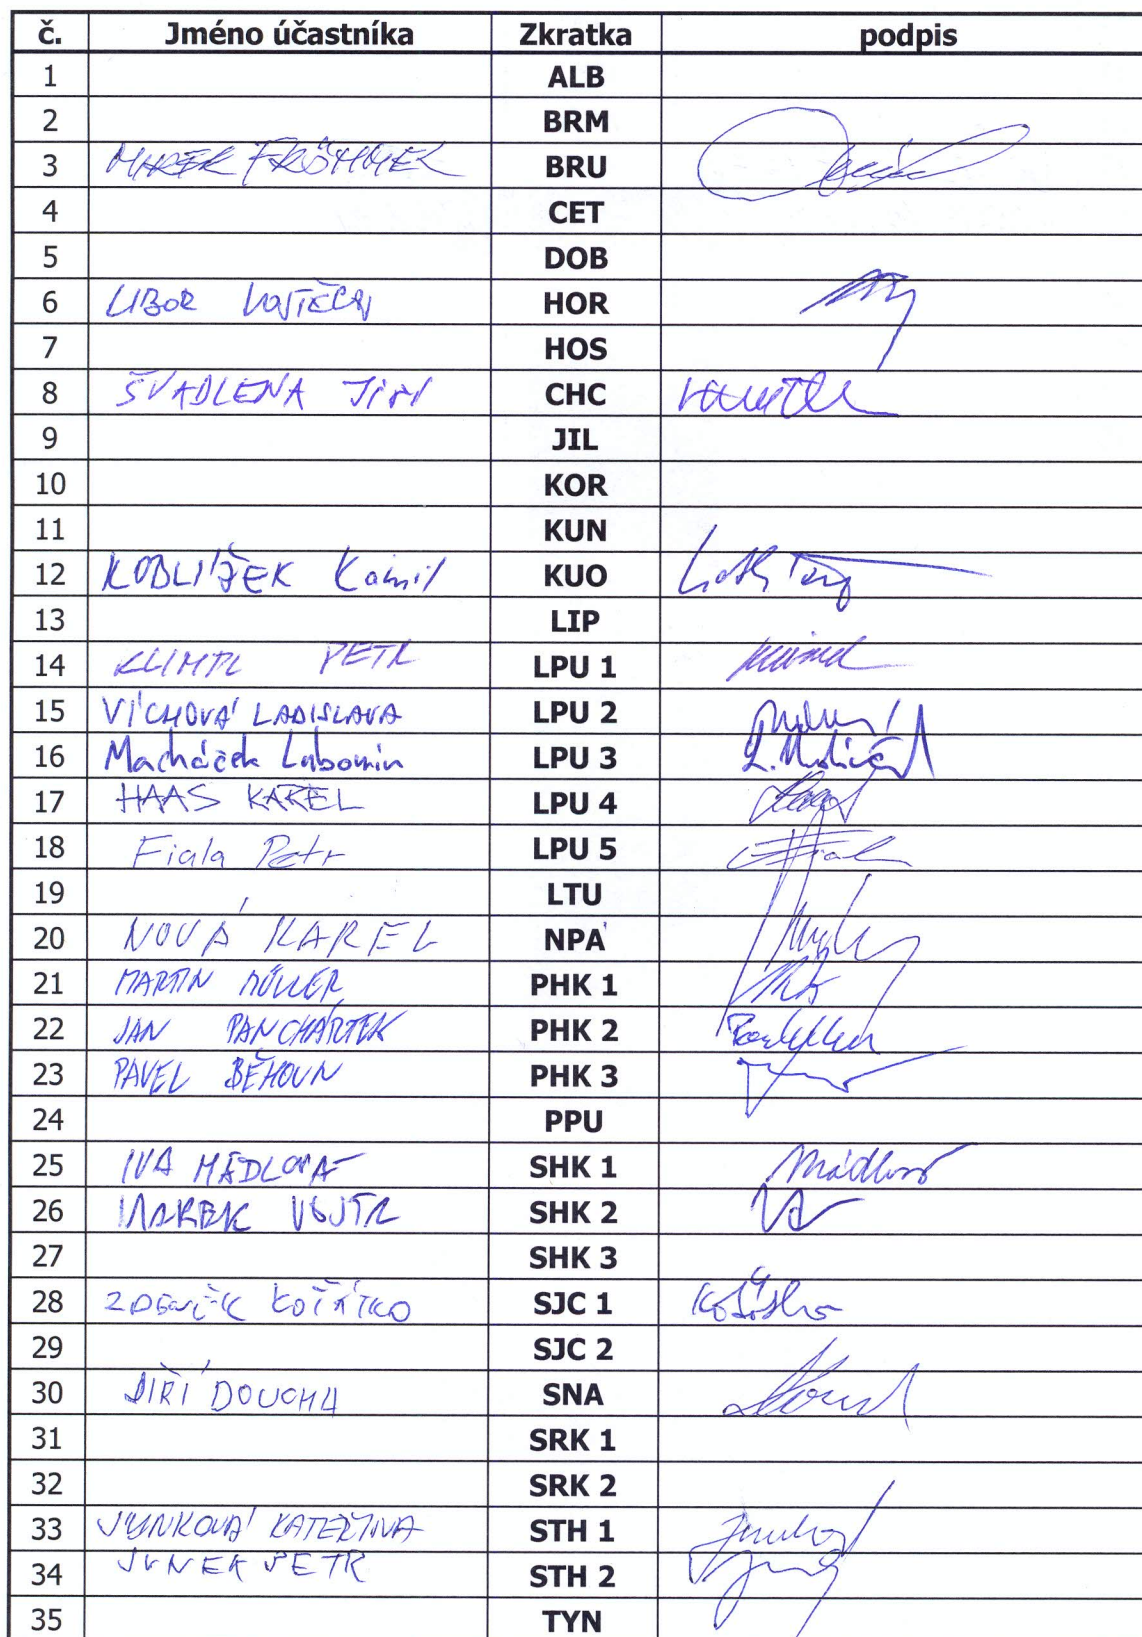 č. Jméno účastníka Zkratka podpis
1 ALB
2 BRM
3 MAREK FRÖMMEL BRU
4 CET
5 DOB
6 LIBOR VOJTĚCH HOR
7 HOS
8 ŠVADLENA Jiří CHC
9 JIL
10 KOR
11 KUN
12 KOBLÍŽEK Kamil KUO
13 LIP
14 KLIMPL PETR LPU 1
15 VÍCHOVÁ LADISLAVA LPU 2
16 Macháček Lubomír LPU 3 L.
17 HAAS KAREL LPU 4
18 Fiala Petr LPU 5
19 LTU
20 NOVÁ KAREL NPA
21 MARTIN MÜLLER PHK 1
22 JAN PANCHÁRTEK PHK 2
23 PAVEL BĚHOUN PHK 3
24 PPU
25 IVA MÁDLOVÁ SHK 1 Mádlová
26 MAREK VOJTA SHK 2
27 SHK 3
28 ZDENĚK KOŤÁTKO SJC 1 Koťátko
29 SJC 2
30 JIŘÍ DOUCHA SNA
31 SRK 1
32 SRK 2
33 JUNKOVÁ KATEŘINA STH 1
34 JUNEK PETR STH 2
35 TYN